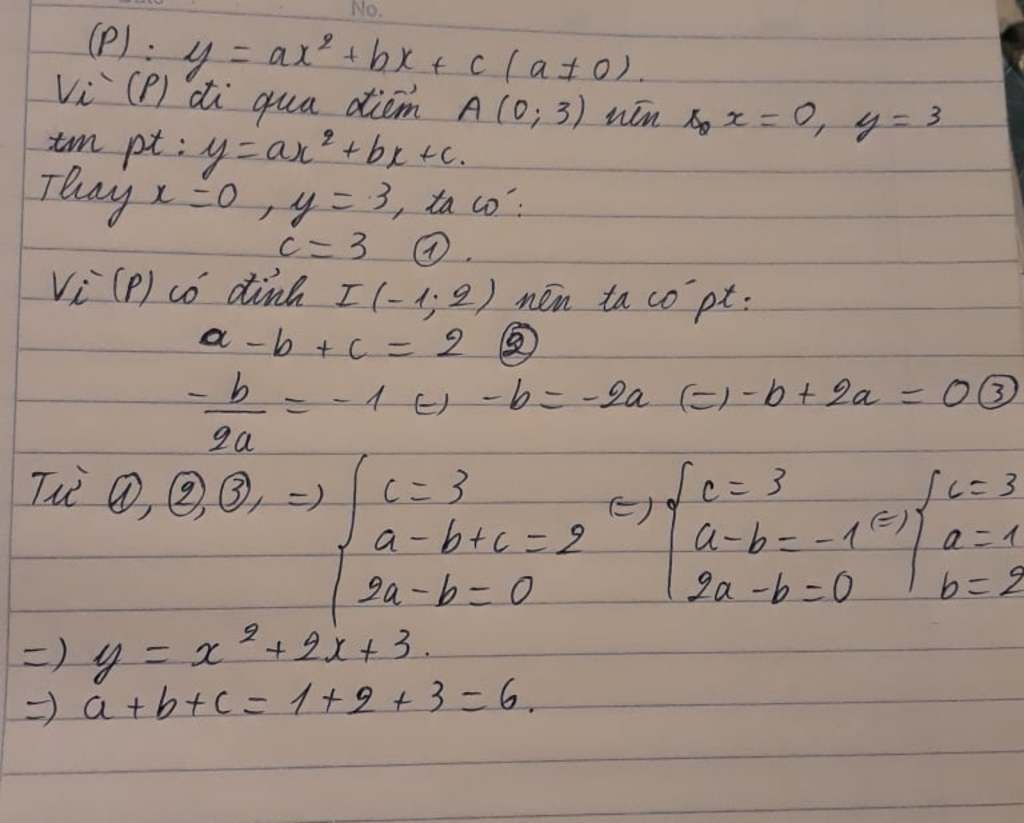 No.
(P): y = ax² + bx + c (a ≠ 0).
Vì (P) đi qua điểm A(0; 3) nên x = 0, y = 3
tm pt: y = ax² + bx + c.
Thay x = 0, y = 3, ta có:
c = 3 ①.
Vì (P) có đỉnh I(-1; 2) nên ta có pt:
a - b + c = 2 ②
-b/2a = -1 (=) -b = -2a (=) -b + 2a = 0 ③
Từ ①, ②, ③, =) { c = 3 (=) { c = 3 (=) { c = 3
a - b + c = 2 a - b = -1 a = 1
2a - b = 0 2a - b = 0 b = 2
=) y = x² + 2x + 3.
=) a + b + c = 1 + 2 + 3 = 6.